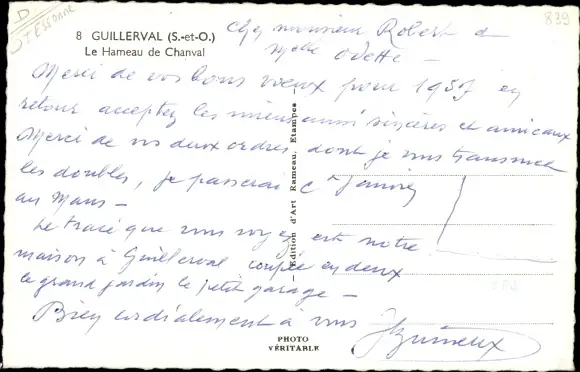 D
ESSONNE
839
8 GUILLERVAL (S.-et-O.)
Le Hameau de Chanval
Cher monsieur Robert &
Melle Odette –
Merci de vos bons vœux pour 1957 en
retour acceptez les miens aussi sincères et amicaux
Merci de vos deux ordres dont je vous transmet
les doubles, je passerai Ct Janvier
au Mans –
Le tracé que vous voyez est notre
maison à Guillerval coupée en deux
le grand jardin le petit garage –
Bien cordialement à vous
Edition d'Art Rameau, Etampes
PHOTO
VÉRITABLE